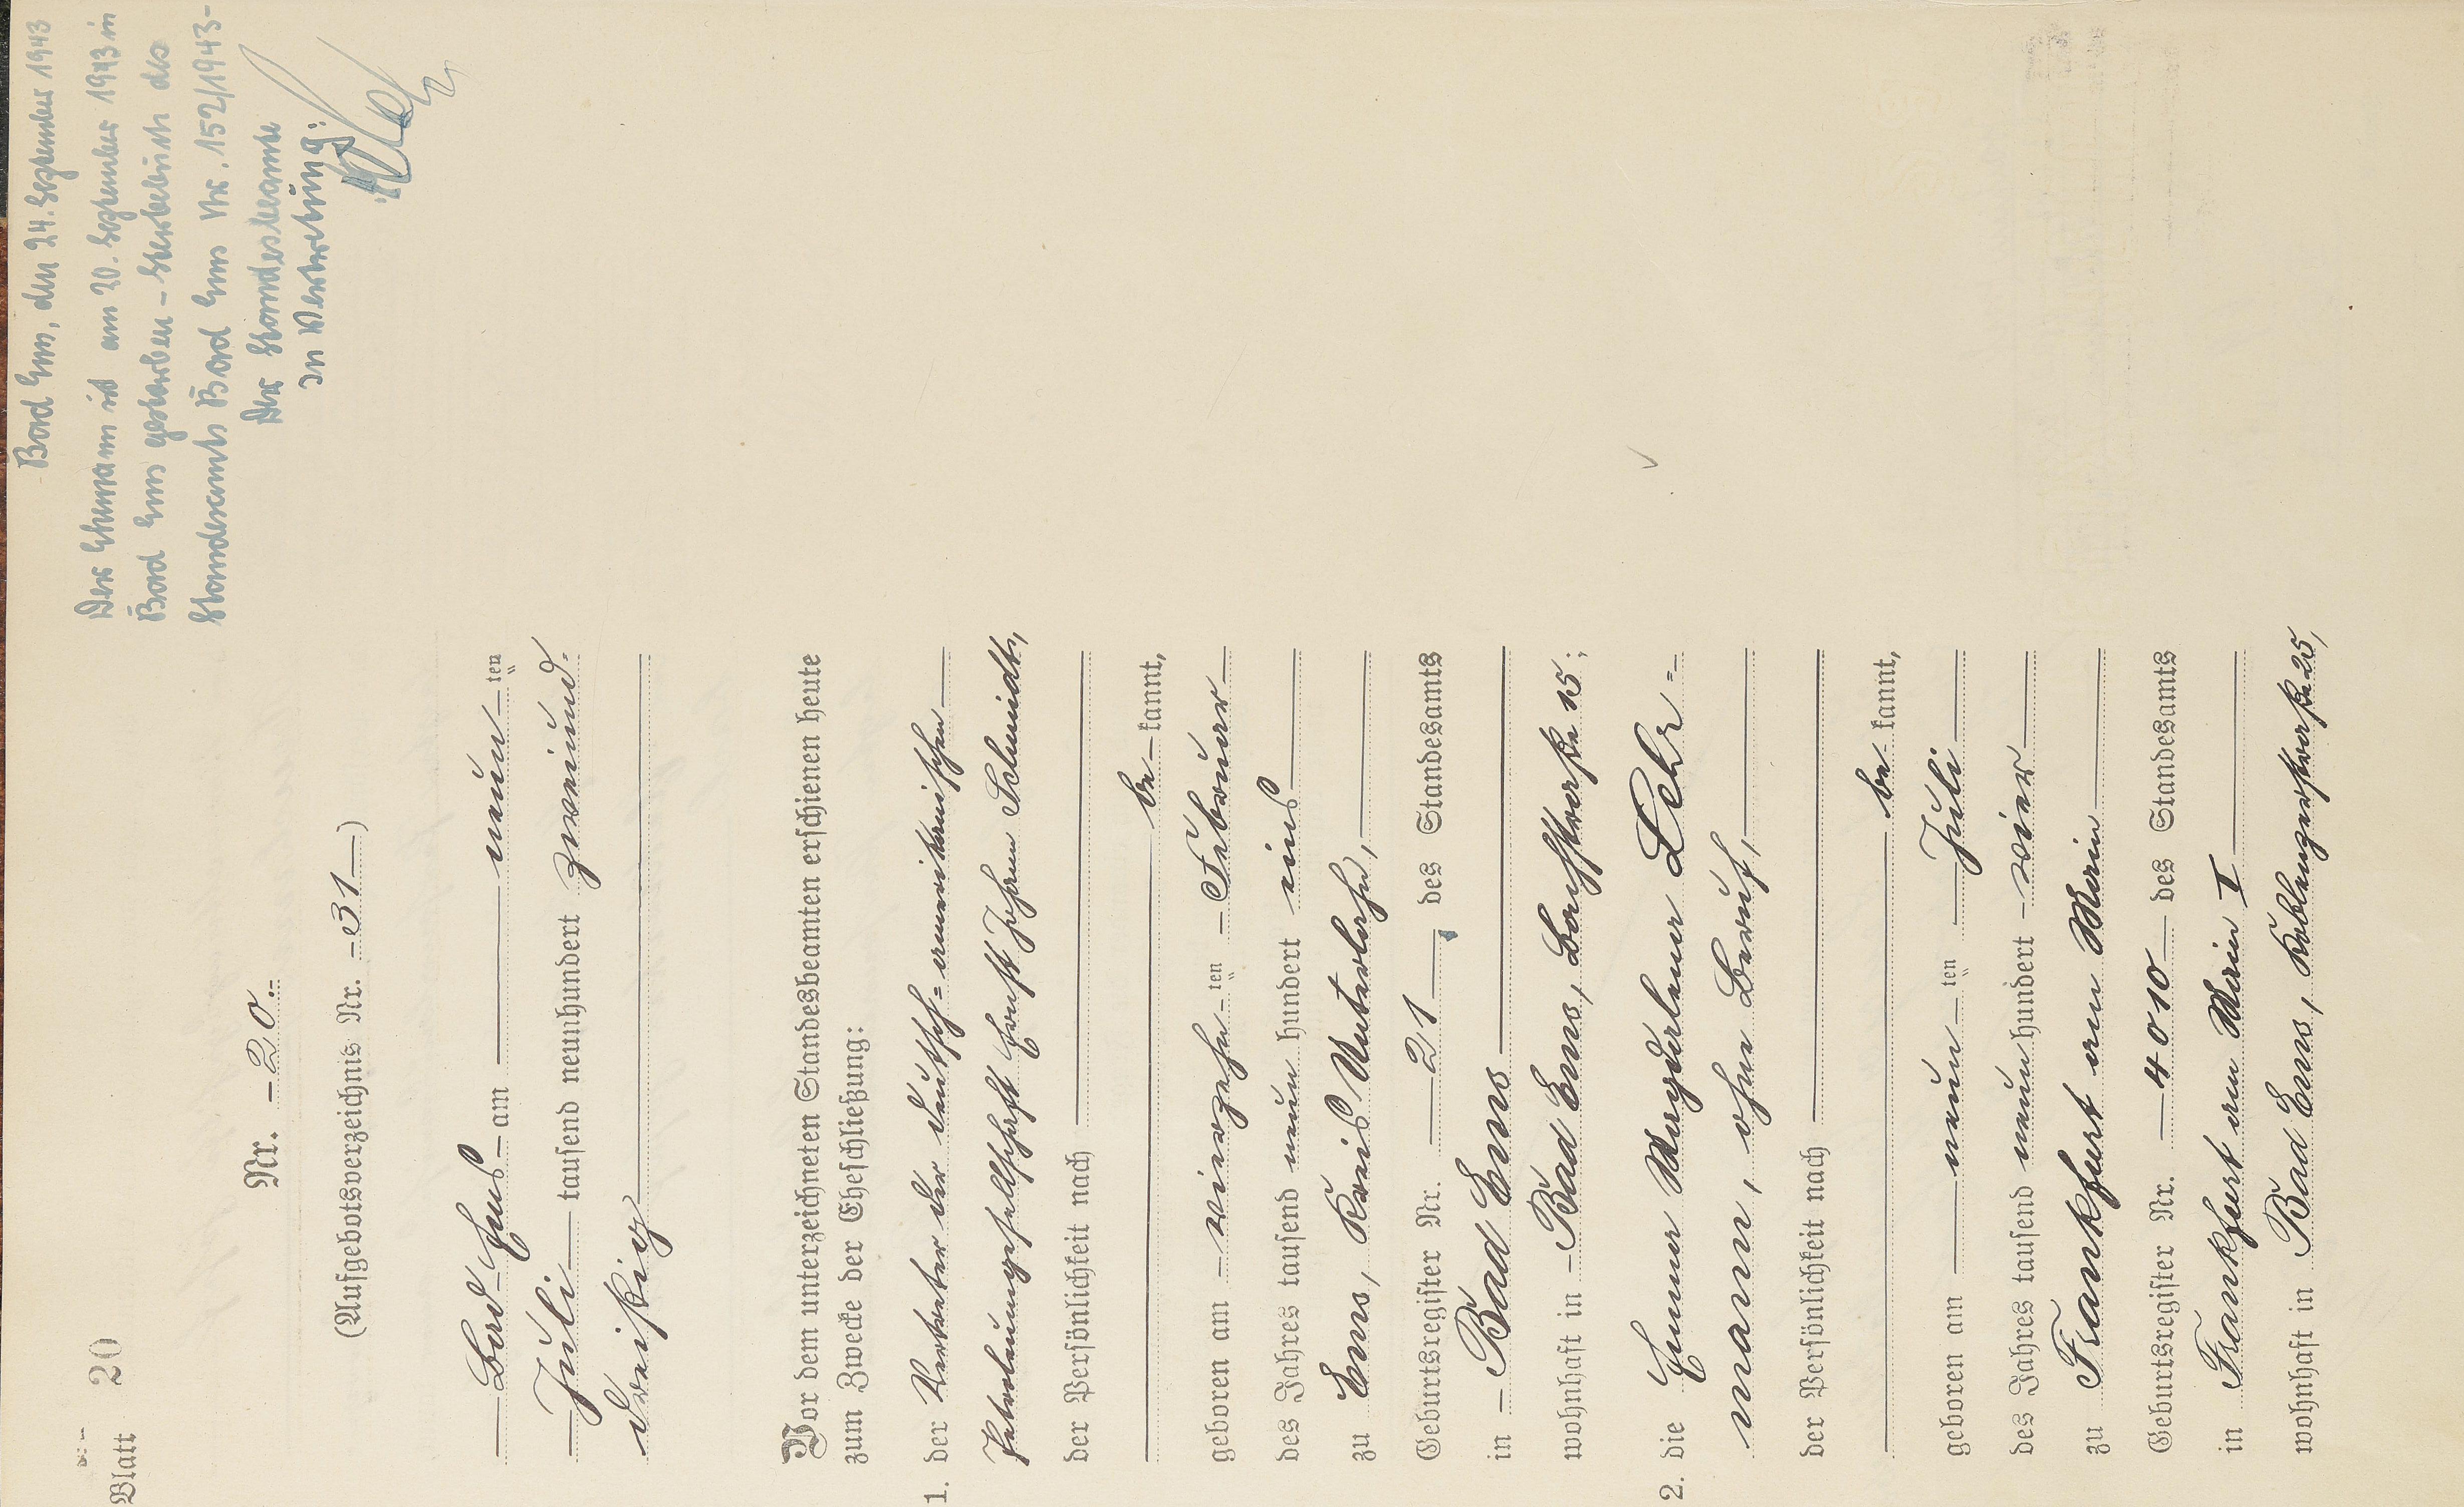 Blatt 20
Nr. 20.
(Aufgebotsverzeichnis Nr. 31)
Bad Ems am neun ten
Juli tausend neunhundert zweiund-
dreißig
Vor dem unterzeichneten Standesbeamten erschienen heute
zum Zwecke der Eheschließung:
1. der Vertreter der deutsch-amerikanischen
Petroleumgesellschaft Ernst Johann Schmidt,
der Persönlichkeit nach
be kannt,
geboren am vierzehn ten Februar
des Jahres tausend neun hundert eins
zu Ems, Kreis Unterlahn,
Geburtsregister Nr. 21 des Standesamts
in Bad Ems
wohnhaft in Bad Ems, Bachstraße 15;
2. die Emma Magdalena Lehr-
mann, ohne Beruf,
der Persönlichkeit nach
be kannt,
geboren am neun ten Juli
des Jahres tausend neun hundert vier
zu Frankfurt am Main
Geburtsregister Nr. 4010 des Standesamts
in Frankfurt am Main I
wohnhaft in Bad Ems, Koblenzerstraße 25,
Bad Ems, den 24. September 1943
Der Ehemann ist am 20. September 1943 in
Bad Ems gestorben - Sterbebuch des
Standesamts Bad Ems Nr. 152/1943-
Der Standesbeamte
In Vertretung: